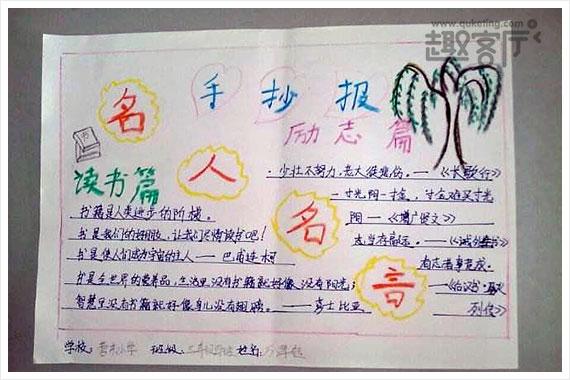 www.quketing.com
趣客厅
手抄报
名人名言
励志篇
读书篇
少壮不努力,老大徒悲伤。——《长歌行》
一寸光阴一寸金,寸金难买寸光
阴——《增广贤文》
志当存高远。——《诫外甥书》
有志者事竟成。
——《后汉书·
列传》
书籍是人类进步的阶梯。
书是我们的好朋友,让我们尽情读书吧!
书是使人们成为宇宙的主人——巴甫连柯
书是全世界的营养品,生活里没有书籍就好像没有阳光;
智慧里没有书籍就好像鸟儿没有翅膀。——莎士比亚
学校: 小学 班级: 三年级 姓名: